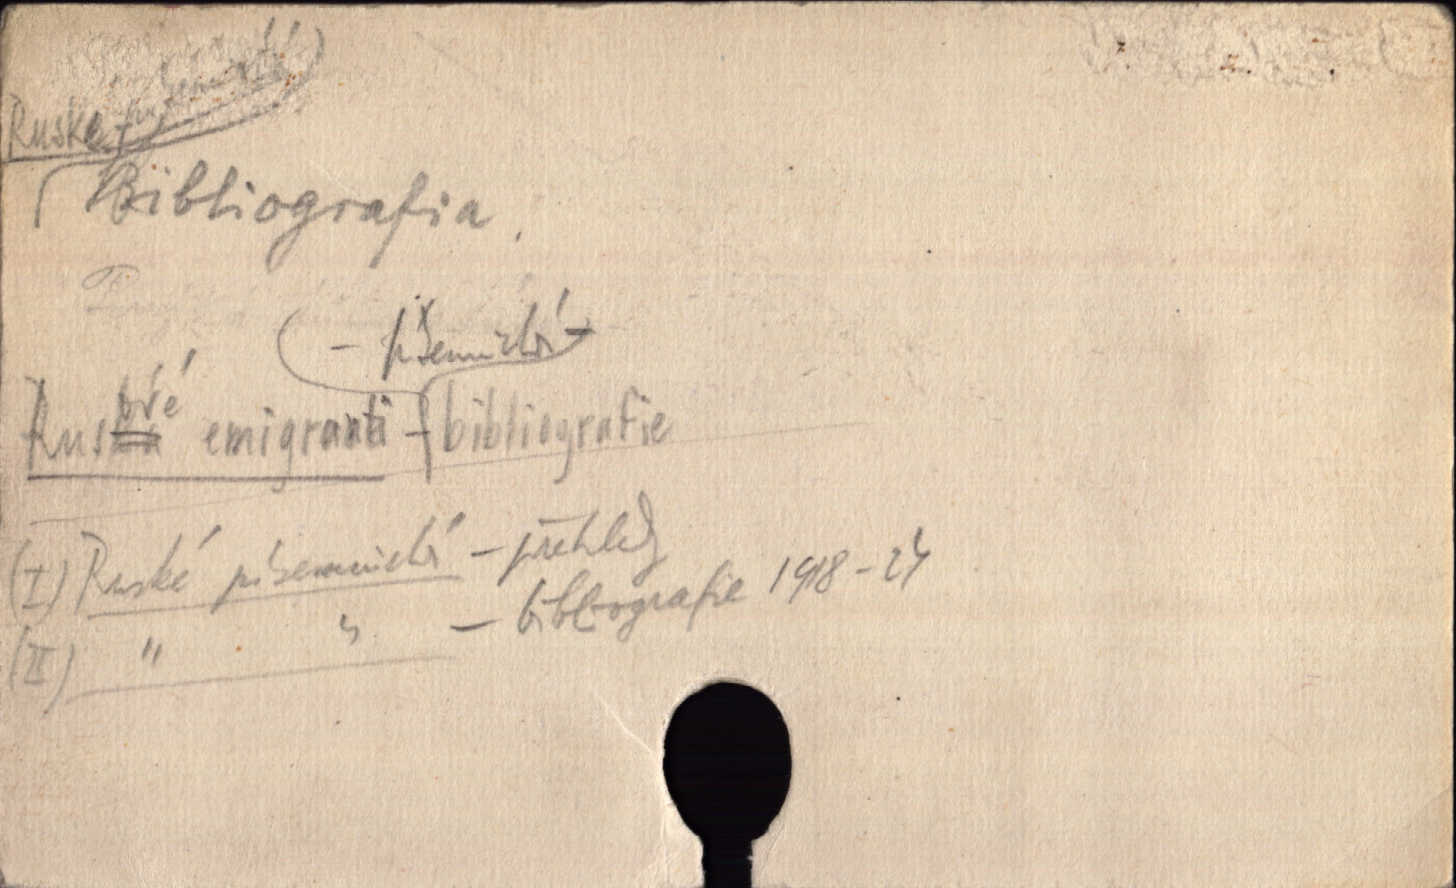 Ruské písemnictví
Bibliografia.
– písemnictví
Rusové emigranti – bibliografie
(I) Ruské písemnictví – přehledy
(II) " " – bibliografie 1918–24